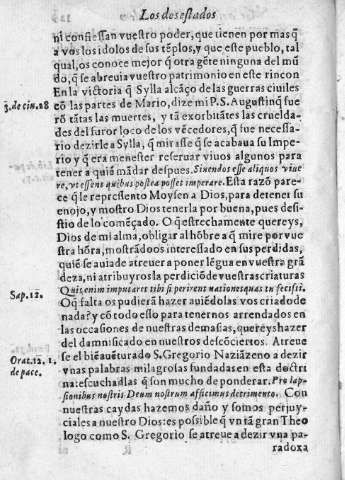 Los dos estados
ni confiessan vuestro poder, que tienen por mas q̃
a vos los idolos de sus tẽplos, y que este pueblo, tal
qual, os conoce mejor q̃ otra gẽte ninguna del mũ
do, q̃ se abreuia vuestro patrimonio en este rincon
En la victoria q̃ Sylla alcãço de las guerras ciuiles
3. de ciu. 28 cõ las partes de Mario, dize mi P. S. Augustin q̃ fue
rõ tãtas las muertes, y tã exorbitãtes las cruelda-
des del furor loco de los vẽcedores, q̃ fue necessa-
rio dezirle a Sylla, q̃ mirasse q̃ se acabaua su Impe-
rio y q̃ era menester reseruar viuos algunos para
tener a quiẽ mãdar despues. Sinendos esse aliquos viue
re, vt essent quibus postea posset imperare. Esta razõ pare-
ce q̃ le represento Moysen a Dios, para detener su
enojo, y mostro Dios tenerla por buena, pues desi-
stio de lo comẽçado. O q̃ estrechamente quereys,
Dios de mi alma, obligar al hõbre a q̃ mire por vue
stra hõra, mostrãdoos interessado en sus perdidas,
quiẽ se auia de atreuer a poner lẽgua en vuestra grã
deza, ni atribuyros la perdiciõ de vuestras criaturas
Sap. 12. Quis enim imputaret tibi si perirent nationes quas tu fecisti.
O q̃ falta os pudiera hazer auiẽdolas vos criado de
nada? y cõ todo esso para tenernos arrendados en
las occasiones de nuestras demasias, quereys hazer
del damnificado en nuestros descõciertos. Atreue
se el biẽauẽturado S. Gregorio Naziãzeno a dezir
Orat. 12. 1. vnas palabras milagrosas fundadas en esta doctri
de pace. na: escuchadlas q̃ son mucho de ponderar. Pro lap-
sionibus nostris Deum nostrum afficimus detrimento. Con
nuestras caydas hazemos daño y somos perjuy-
ciales a nuestro Dios: es possible q̃ vn tã gran Theo
logo como S. Gregorio se atreue a dezir vna pa-
radoxa